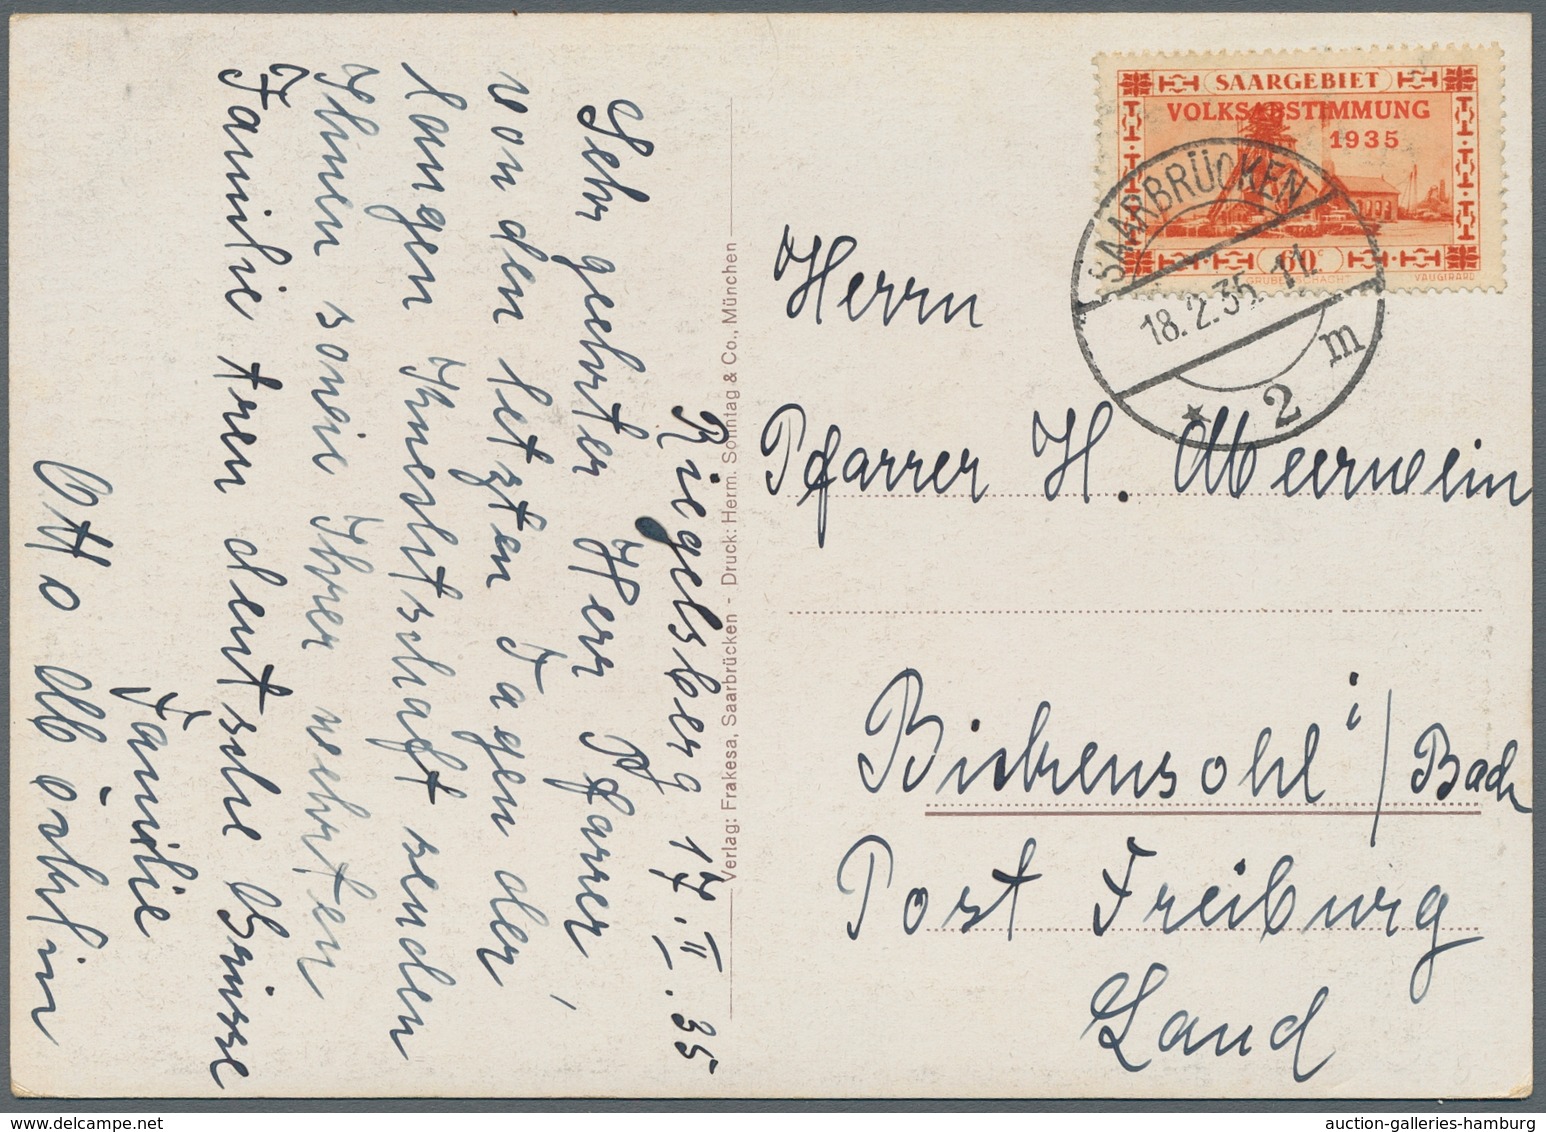 Riegelsberg 17. II. 35
Sehr geehrter Herr Pfarrer,
von den letzten Tagen der
langen Knechtschaft senden
Ihnen sowie Ihrer wehrten
Familie treu deutsche Grüsse
Familie
Otto
Verlag: Frakesa, Saarbrücken - Druck: Herm. Sonntag & Co., München
SAARGEBIET
VOLKSABSTIMMUNG
1935
60 c
GRUBENSCHACHT VAUGIRARD
SAARBRÜCKEN
18.2.35. 11
* 2 m
Herrn
Pfarrer H. Meerwein
Bickensohl i/ Bad
Post Freiburg
Land
auction-galleries-hamburg